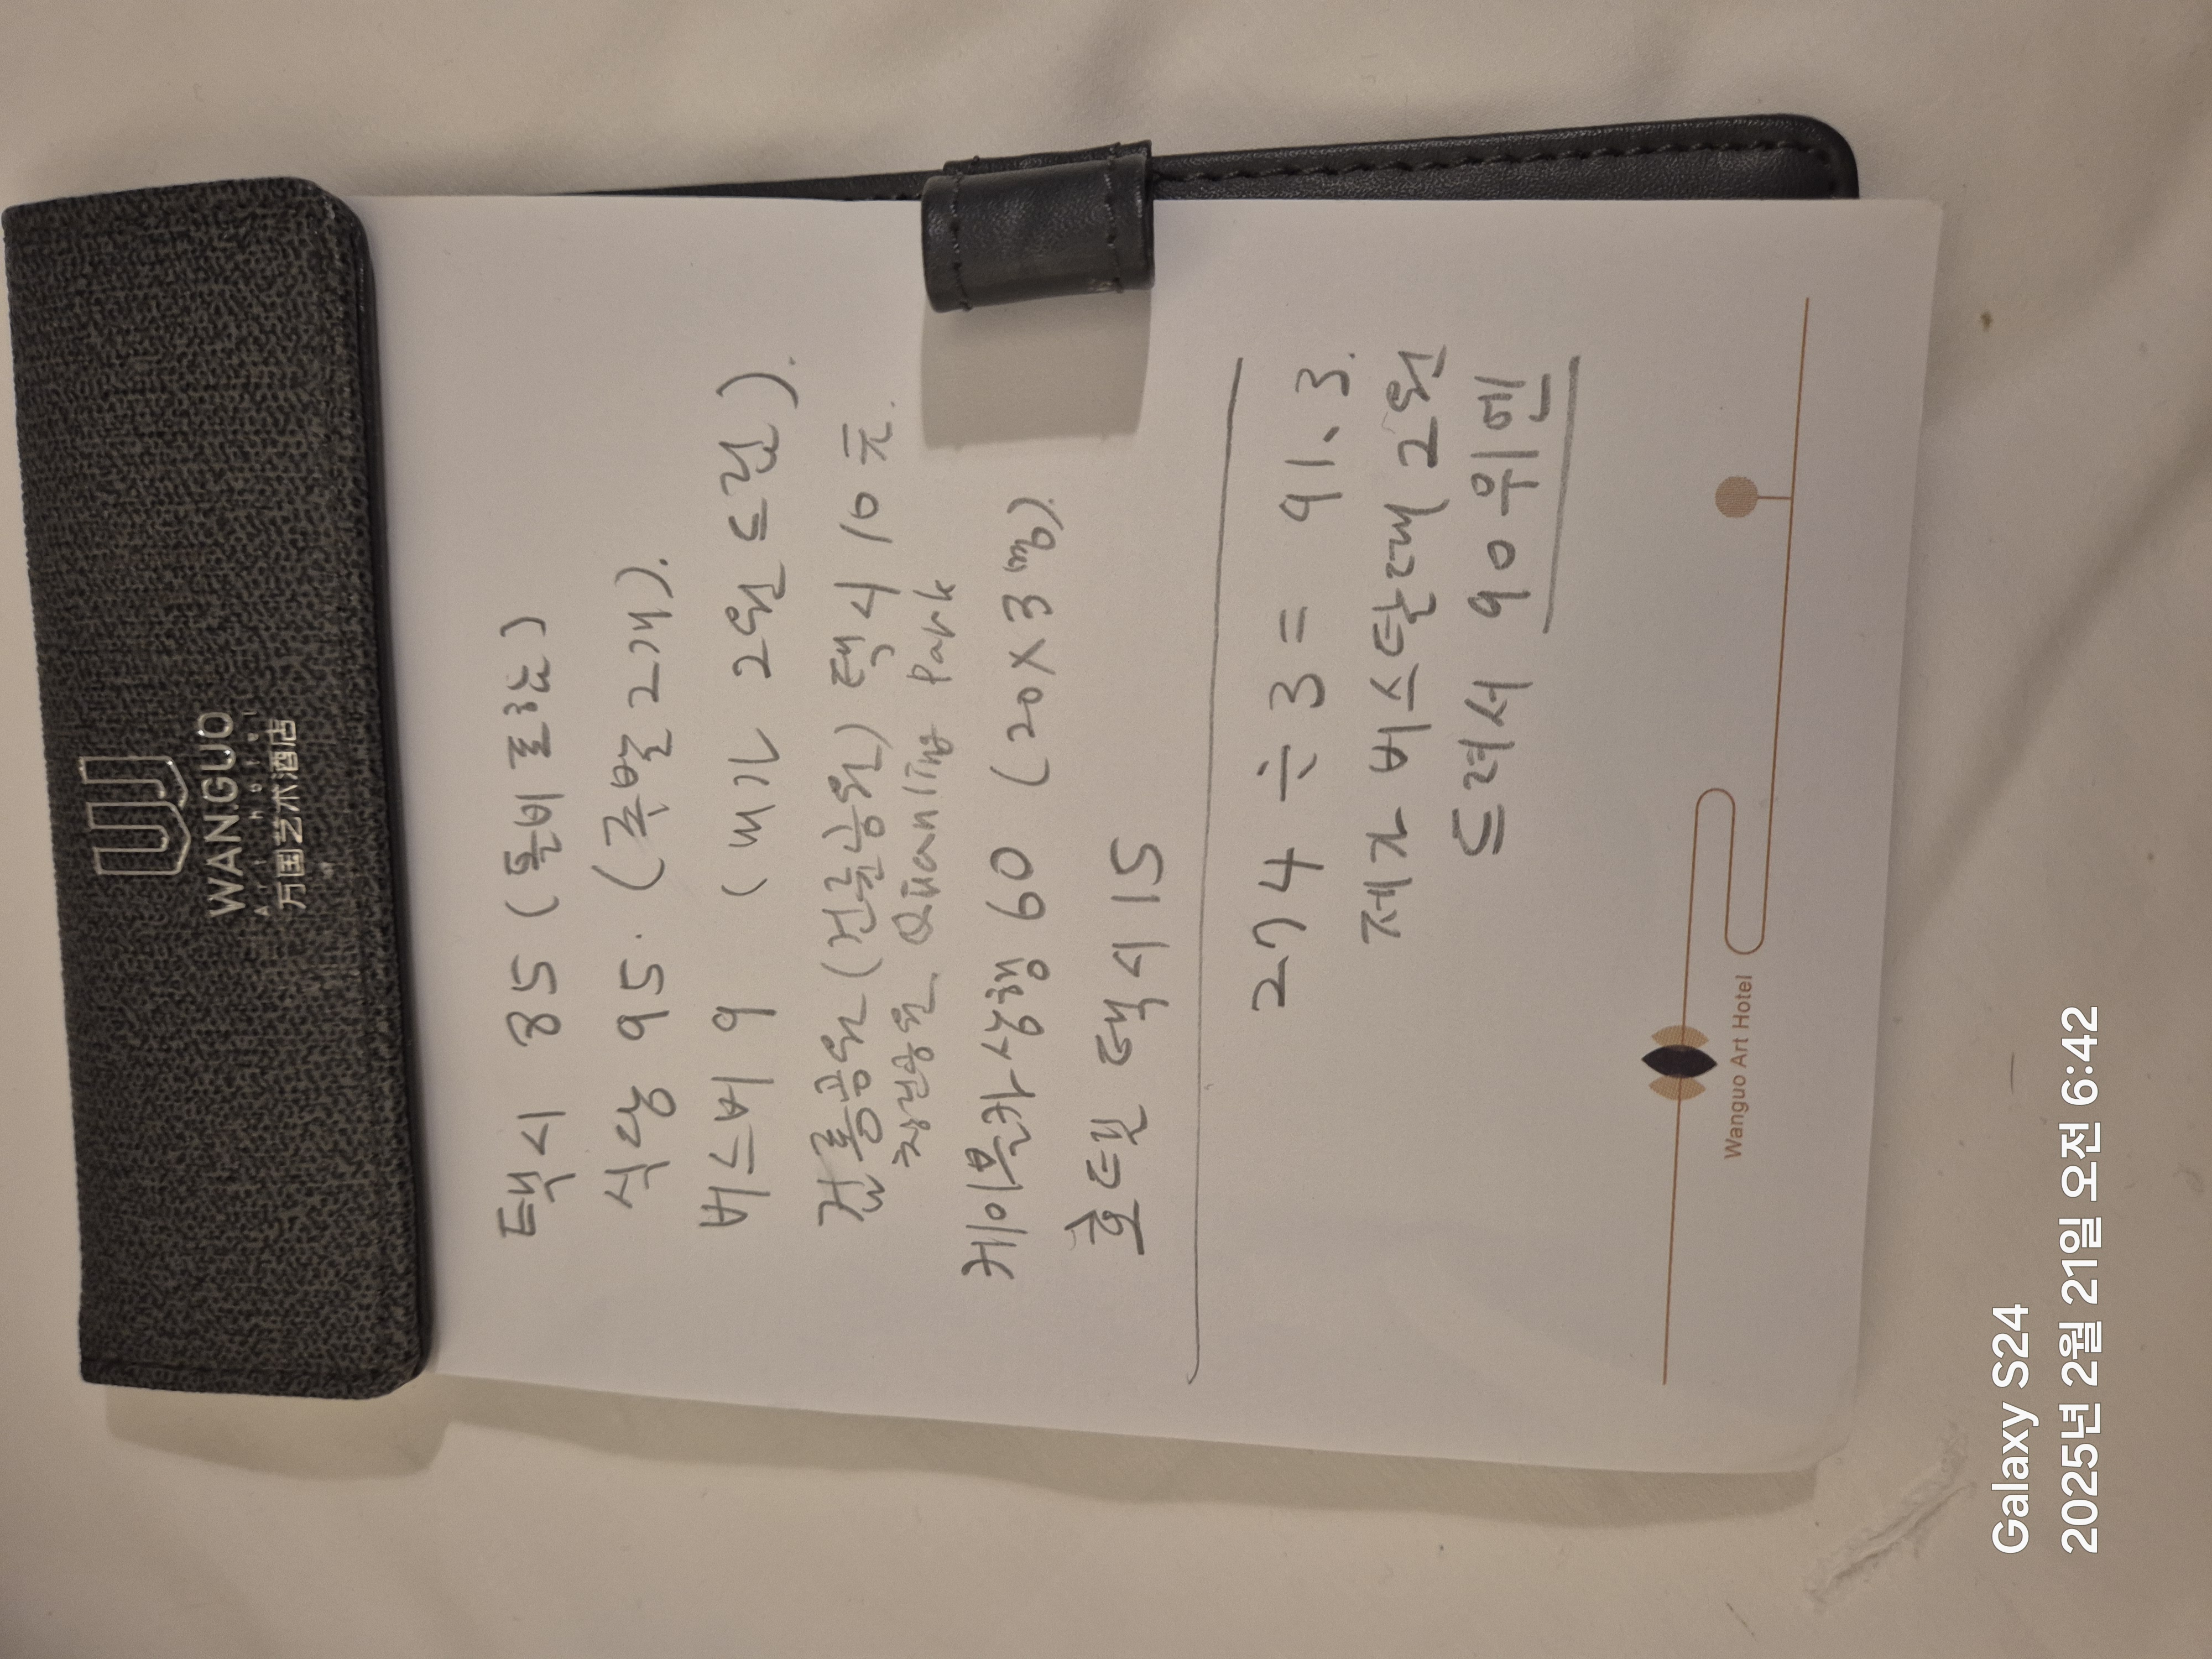 WANGUO
Art Hotel
万国艺术酒店
택시 85 (톨비포함)
식당 95. (족발 2개).
버스비 9 (삐기 2원 드림).
건릉공원 (건릉공원) 택시 10元.
청년공원 Qianling Park
케이블카상행 60 (20x3명).
호텔 택시 15
274 ÷ 3 = 91.3.
제가 버스탈때 2원
드려서 90위엔
Wanguo Art Hotel
Galaxy S24
2025년 2월 21일 오전 6:42